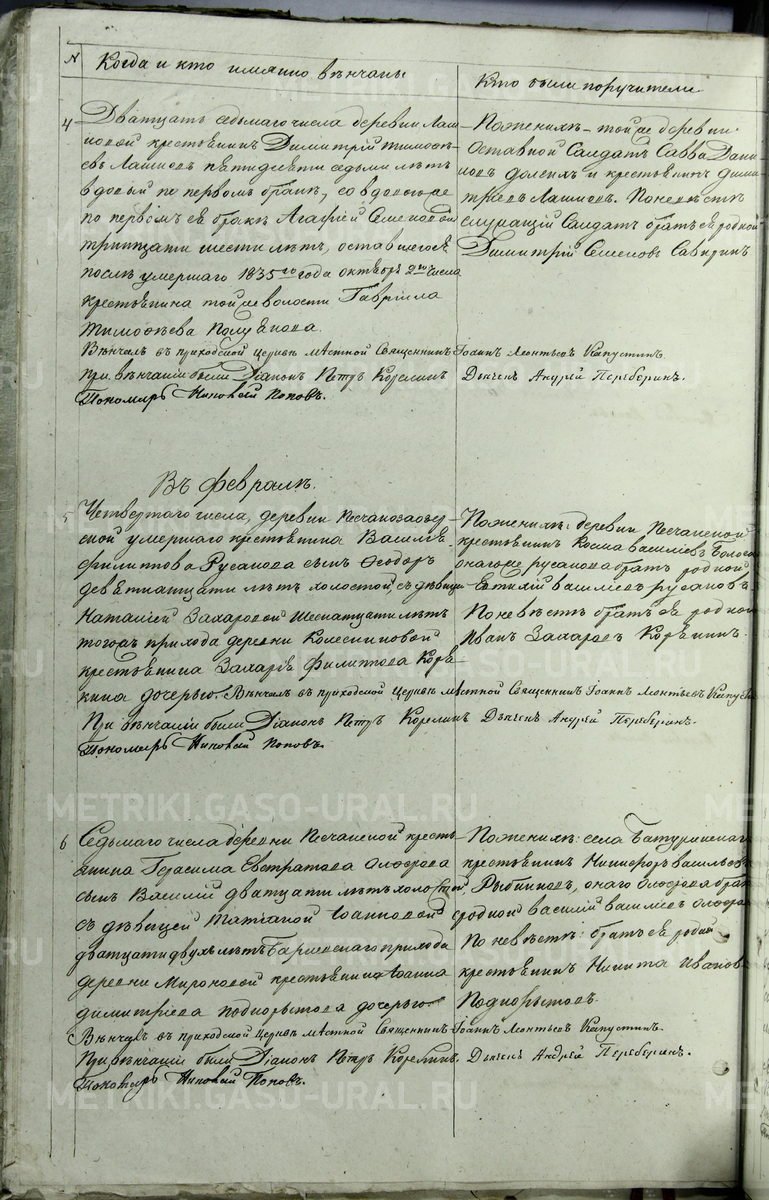 N
Когда и кто имянно вѣнчаны
Кто были поручители
4
Дватцать седьмаго числа деревни
крестьянинъ Димитрій Тимофѣ-
евъ пятидесяти седьми лѣтъ
вдовый по первомъ бракѣ, со вдовою
по первомъ ея бракѣ Агафіей Семеновой
тритцати шести лѣтъ, оставшеюся
послѣ умершаго 1835го года октября 2го числа
крестьянина той же волости Гавріила
Тимофѣева
Вѣнчалъ въ приходской Церкви мѣстной Священникъ Іоаннъ Леонтьевъ Капустинъ.
При вѣнчаніи были Діаконъ Петръ Корелинъ Дьячекъ Андрей Переберинъ.
Пономарь Николай Поповъ.
По женихѣ - той же деревни
Отставной Салдатъ Савва Дани-
ловъ и крестьянинъ Дими-
тріевъ По невѣстѣ
служащій Салдатъ братъ ея родной
Димитрій Семеновъ
Въ Февралѣ.
5
Четвертаго числа, деревни Песчаноозер-
ской умершаго крестьянина Василья
Филипова Русанова сынъ Ѳеодоръ
девятнатцати лѣтъ холостой, съ дѣвицей
Наталіей Захаровой Шеснатцати лѣтъ
того жъ прихода деревни Колесниковой
крестьянина Захарія Филипова Коря-
кина дочерью. Вѣнчалъ въ приходской Церкви мѣстной Священникъ Іоаннъ Леонтьевъ
При вѣнчаніи были Діаконъ Петръ Корелинъ Дьячекъ Андрей Переберинъ.
Пономарь Николай Поповъ.
По женихѣ: деревни Песчанской
крестьянинъ Косма Васильевъ
онаго же Русанова братъ родной
Евтихій Васильевъ Русановъ
По невѣстѣ братъ ея родной
Иванъ Захаровъ Корякинъ.
6
Седьмаго числа деревни Песчанской кресть-
янина Герасима Евстратова
сынъ Василій дватцати лѣтъ холостой,
съ дѣвицей Татіаной Іоанновой
дватцати двухъ лѣтъ прихода
деревни Мироновой крестьянина Іоанна
Димитріева Подкорытова дочерью
Вѣнчалъ въ приходской Церкви мѣстной Священникъ Іоаннъ Леонтьевъ Капустинъ.
При вѣнчаніи были Діаконъ Петръ Корелинъ. Дьячекъ Андрей Переберинъ.
Пономарь Николай Поповъ.
По женихѣ: села Батуринскаго
крестьянинъ Никифоръ Васильевъ
Рыбинковъ, онаго
родной Василій Васильевъ
По невѣстѣ: братъ ея родной
крестьянинъ Никита Ивановъ
Подкорытовъ.
METRIKI.GASO-URAL.RU